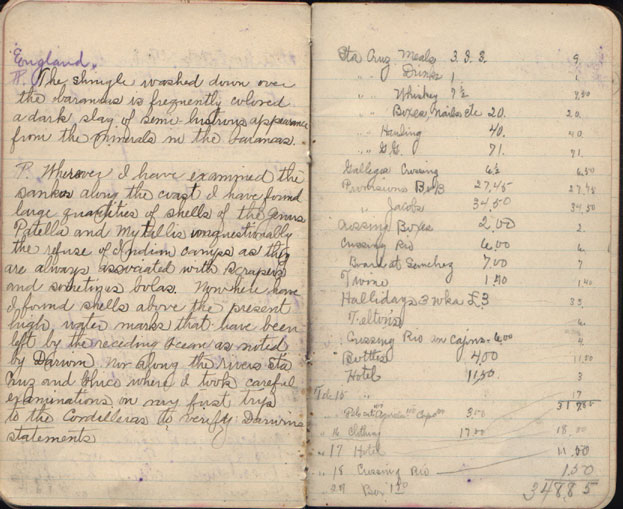 England.
P. The shingle washed down over
the barancas is frequently colored
a dark, slay of semi lustrous appearance
from the minerals in the barancas.
P. Wherever I have examined the
banks along the coast I have found
large quantities of shells of the genus
Patella and Mytallis unquestionally
the refuse of Indian camps as they
are always associated with scrapers
and sometimes bolas. Nowhere have
I found shells above the present
high water marks that have been
left by the receding ocean as noted
by Darwin nor along the rivers Sta
Cruz and Chico where I took careful
examinations on my first trip
to the Cordelleras to verify Darwins
statements
Sta Cruz Meals 3.3.3. 9.
" " Drinks 1. 1.
" " Whiskey 7½ 7.50
" " Boxes, Nails etc 20. 20.
" " Hauling 40. 40.
" " G.C. 71. 71.
Gallegos Crossing 6½ 6.50
Provisions 27.45 27.45
" Jacobs 34.50 34.50
Crossing Boxes 2.00 2.
Crossing Rio 6.00 6.
Board at Sanchez 7.00 7.
Twine 1.40 1.40
Hallidays 3 wks £3 33.
Crossing Rio in 6.00
Bottles 4.00
Hotel 11.50
17
" 16 Clothing 17.00 18.00
" 17 Hotel 11.50
" 18 Crossing Rio 1.50
348.85